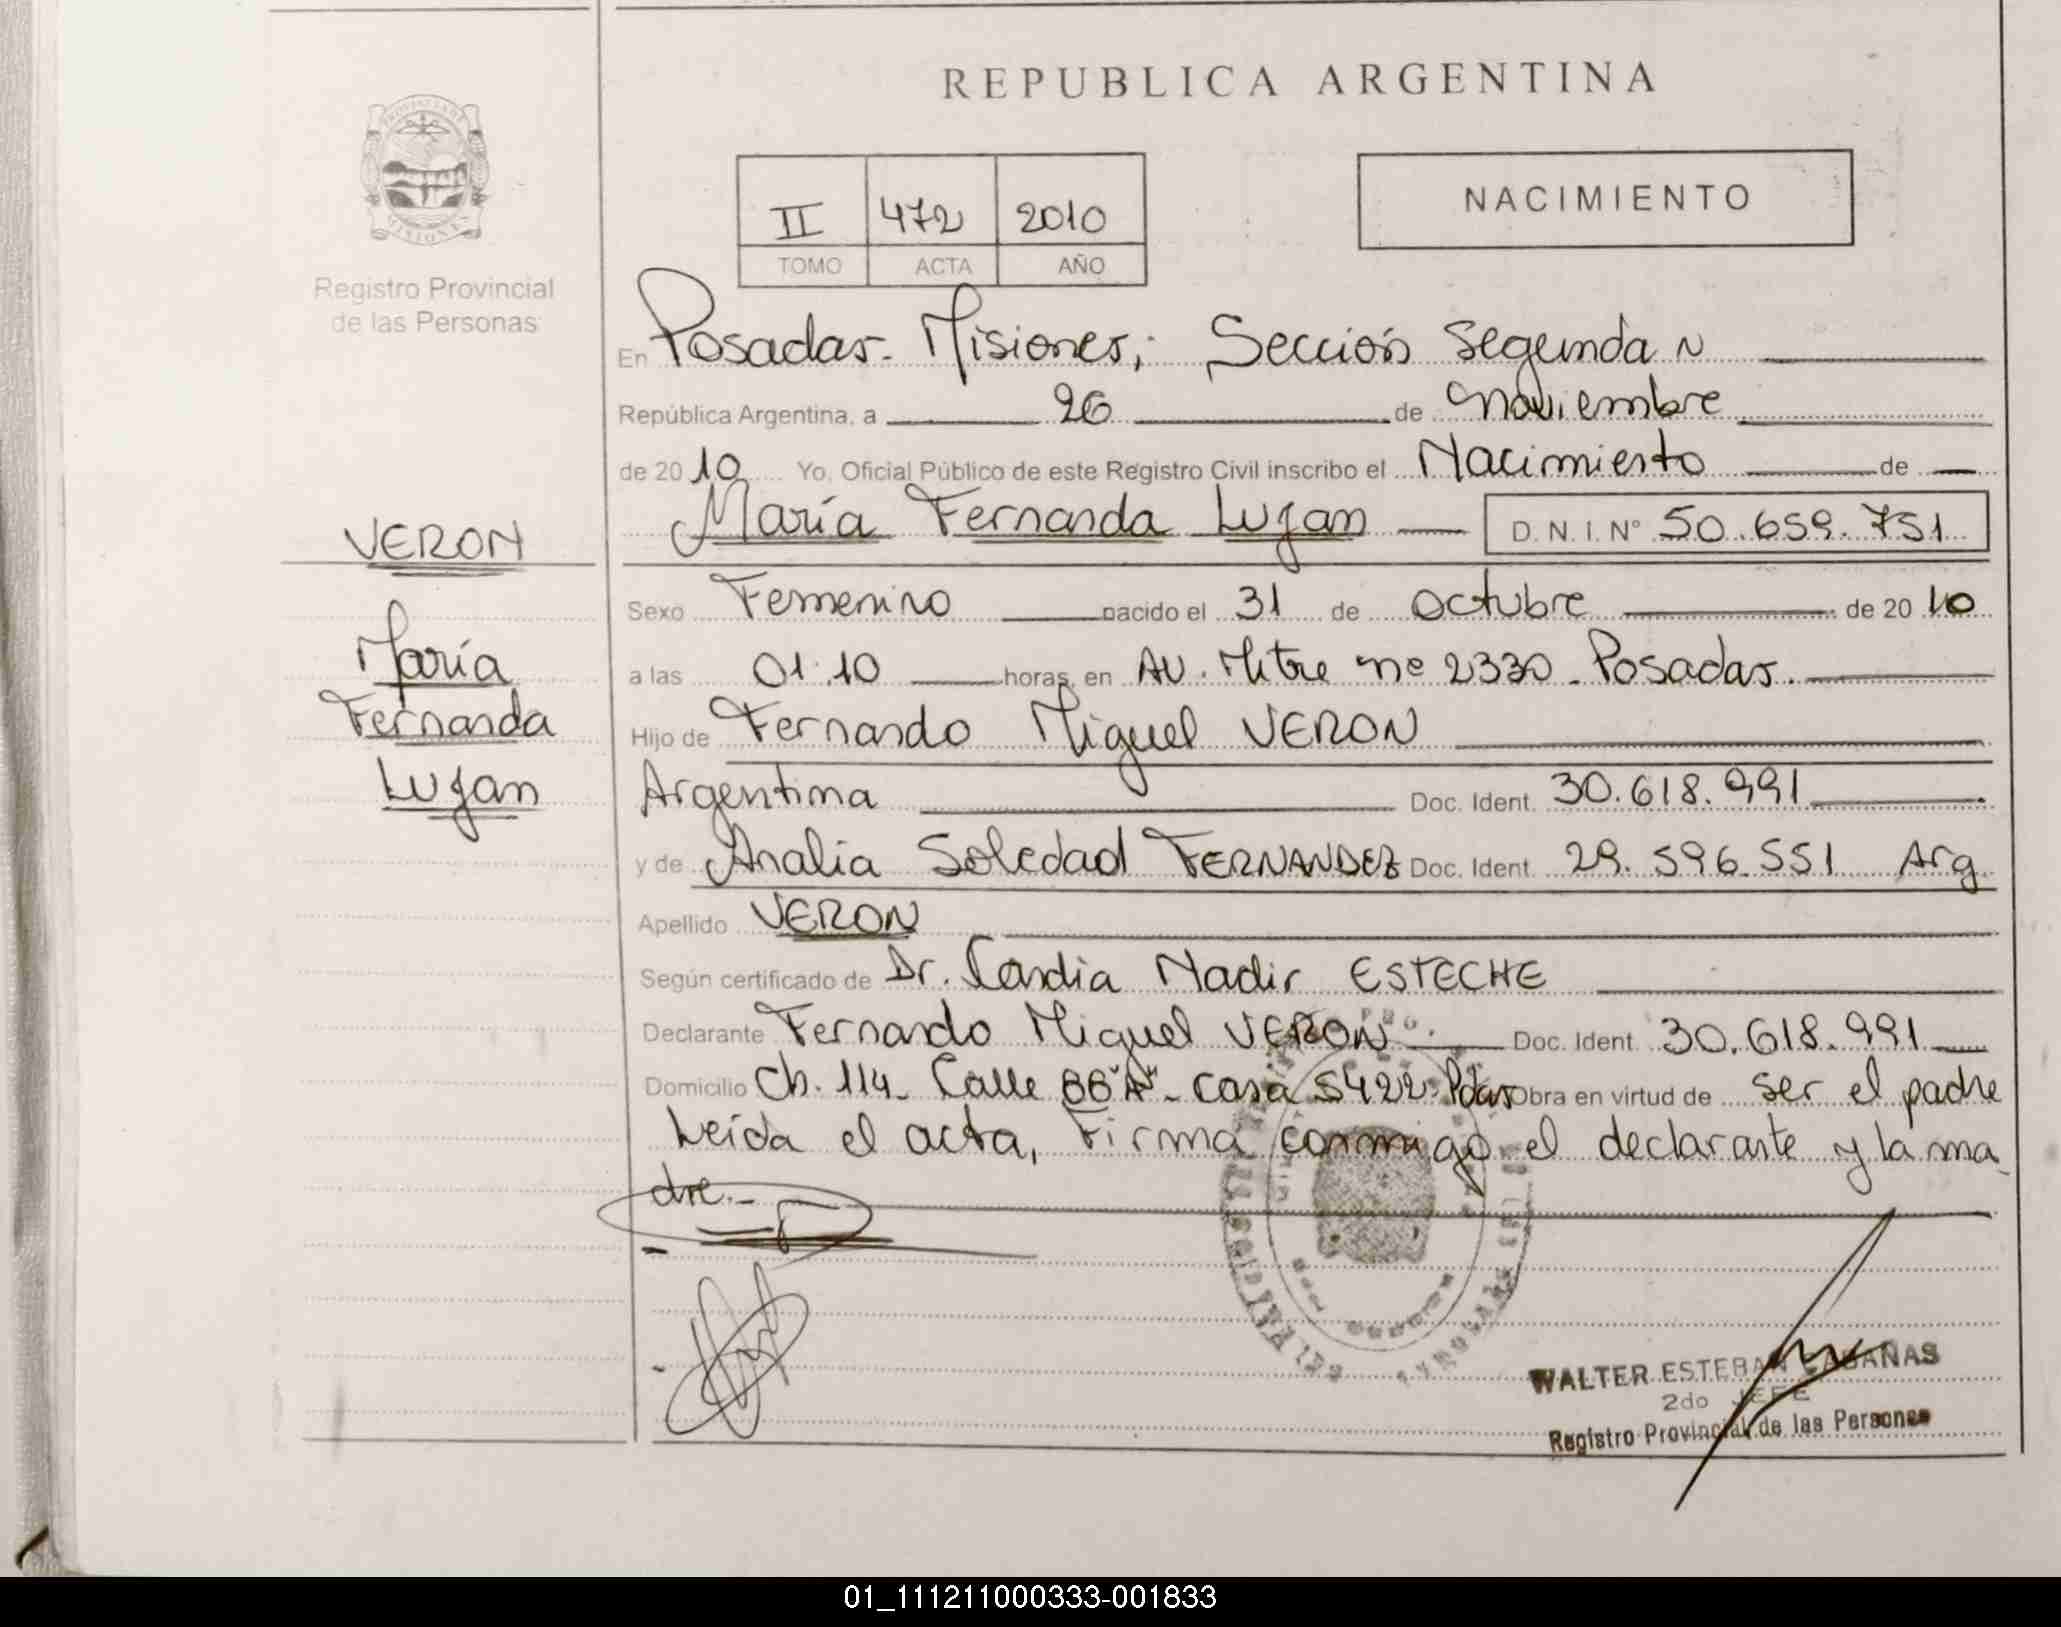 REPUBLICA ARGENTINA
PROVINCIA DE MISIONES
Registro Provincial
de las Personas
II 472 2010
TOMO ACTA AÑO
NACIMIENTO
En Posadas - Misiones; Sección Segunda N
República Argentina, a 26 de noviembre
de 2010 Yo, Oficial Público de este Registro Civil inscribo el Nacimiento de
María Fernanda Lujan D.N.I. Nº 50.659.751
VERON
María
Fernanda
Lujan
Sexo Femenino nacido el 31 de Octubre de 2010
a las 01:10 horas, en AV. Mitre nº 2330 - Posadas.
Hijo de Fernando Miguel VERON
Argentina Doc. Ident. 30.618.991
y de Analia Soledad FERNANDEZ Doc. Ident. 29.596.551 Arg
Apellido VERON
Según certificado de Dr. Nadir ESTECHE
Declarante Fernando Miguel VERON Doc. Ident. 30.618.991
Domicilio Ch. 114 - Calle "A" - Casa 5422 - Pdas Obra en virtud de ser el padre
Leída el acta, Firma conmigo el declarante y la ma
dre.-
WALTER ESTEBAN CABAÑAS
2do JEFE
Registro Provincial de las Personas
01_111211000333-001833